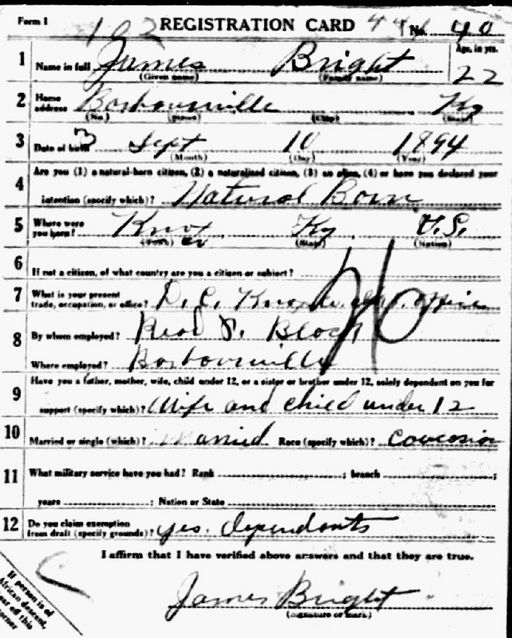 Form 1 192 REGISTRATION CARD No. 40
1 Name in full James Bright Age, in yrs. 22
(Given name) (Family name)
2 Home address Barbourville Ky
(No.) (Street) (City) (State)
3 Date of birth Sept 10 1894
(Month) (Day) (Year)
4 Are you (1) a natural-born citizen, (2) a naturalized citizen, (3) an alien, (4) or have you declared your
intention (specify which)? Natural Born
5 Where were you born? Knox Ky U.S.
(Town) (State) (Nation)
6 If not a citizen, of what country are you a citizen or subject?
7 What is your present trade, occupation, or office? D. C. Knox
8 By whom employed? Read P. Black
Where employed? Barbourville
9 Have you a father, mother, wife, child under 12, or a sister or brother under 12, solely dependent on you for
support (specify which)? Wife and child under 12
10 Married or single (which)? Married Race (specify which)? Caucasian
11 What military service have you had? Rank ; branch ;
years ; Nation or State
12 Do you claim exemption from draft (specify grounds)? Yes. Dependants
I affirm that I have verified above answers and that they are true.
James Bright
(Signature or mark)
If person is of
African descent,
tear off this
corner